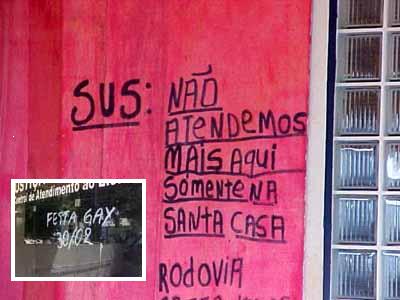 SUS: NÃO
ATENDEMOS
MAIS AQUI
SÓMENTE NA
SANTA CASA
RODOVIA
Central de Atendimento ao
FESTA GAY
30/02